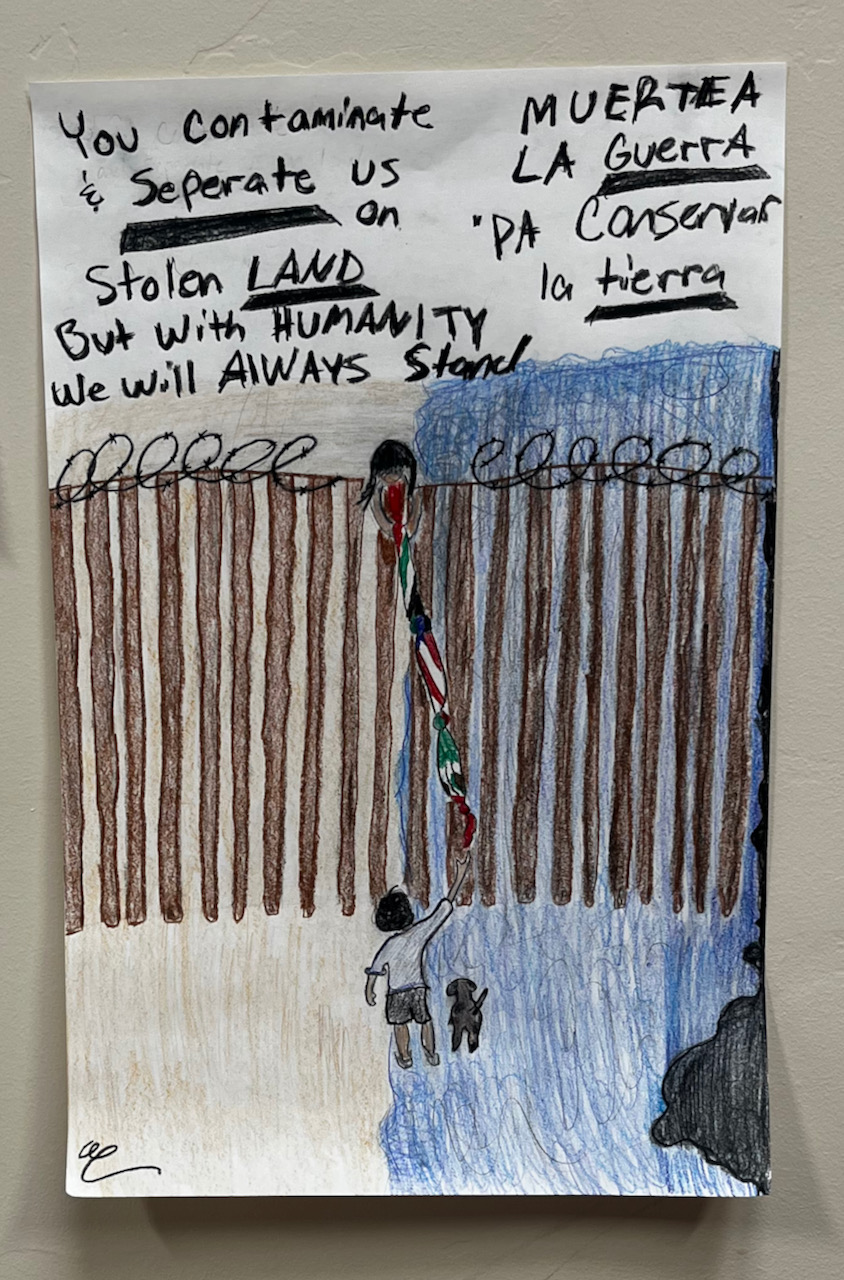 You contaminate
& Seperate us
on
Stolen LAND
But with HUMANITY
We will AlWAYS Stand
MUERTE A
LA GuerrA
"PA Conservar
la tierra